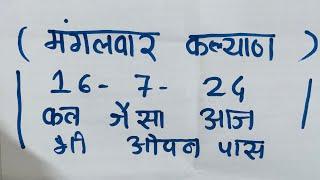 ( मंगलवार कल्याण )
16-7-24
कल जैसा आज
भी ओपन पास